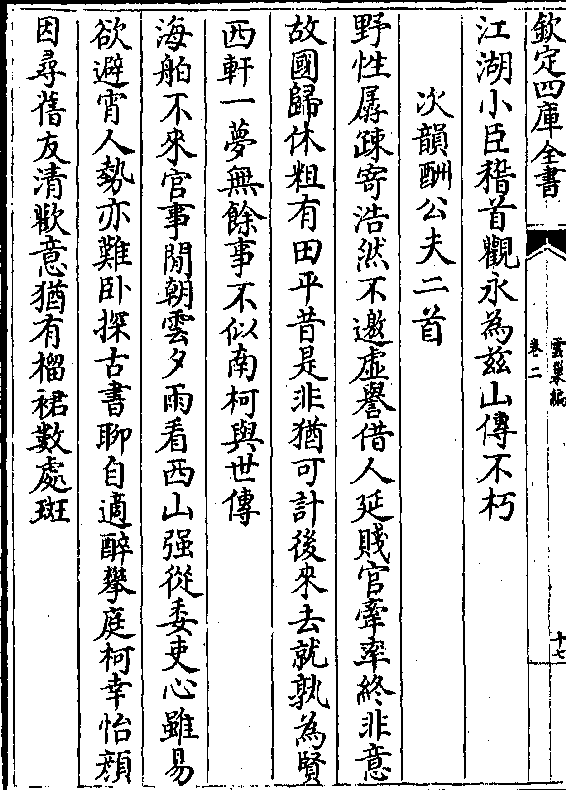 欽定四庫全書
雲巢編
卷二
十七
江湖小臣稽首觀永為兹山傳不朽
次韻酬公夫二首
野性孱踈寄浩然不邀虛譽借人延賤官牽率終非意
故國歸休粗有田平昔是非猶可計後來去就孰為賢
西軒一夢無餘事不似南柯與世傳
海舶不來官事閒朝雲夕雨看西山强從委吏心雖易
欲避宵人勢亦難卧探古書聊自適醉攀庭柯幸怡顔
因尋舊友清歡意猶有榴裙數處斑